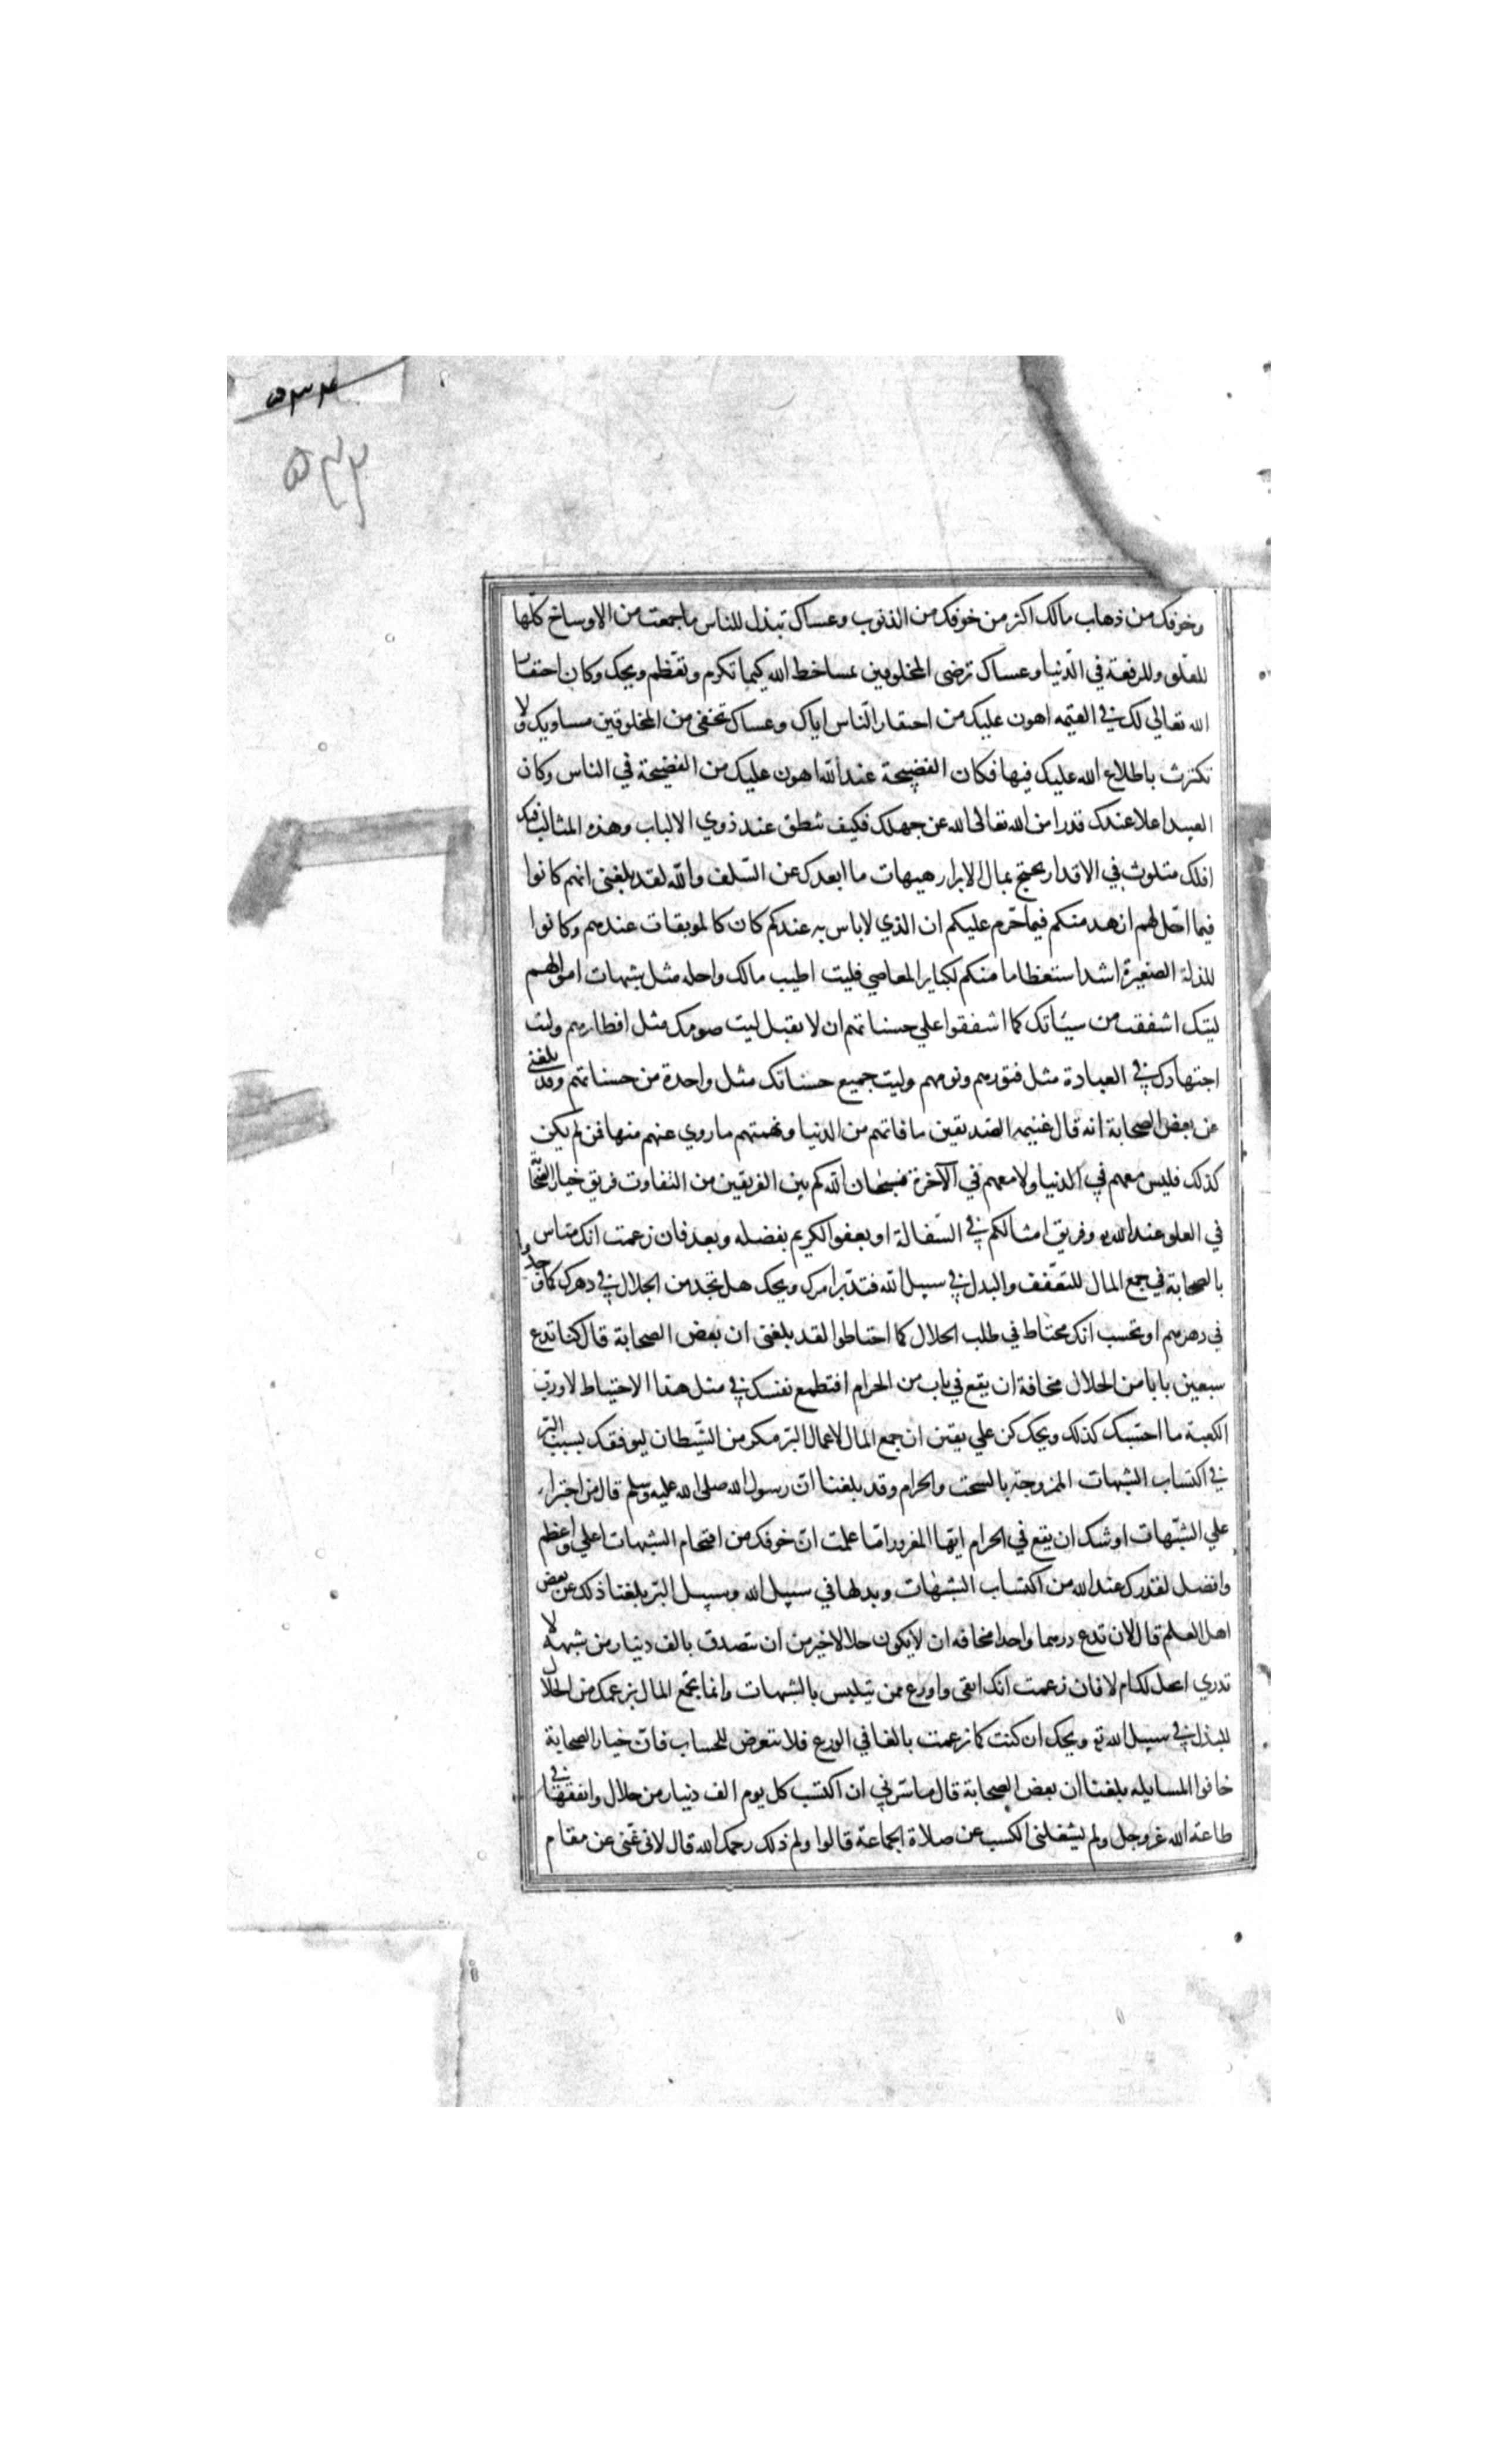 ۵۳۴
۵۳۳
وخوفك من ذهاب مالك اكثر من خوفك من الذنوب وعساك تبذل للناس ما جمعت من الاوساخ كلّها
للعلو وللرفعة في الدّنيا وعساك ترضى المخلوقين بمساخط الله كيما تكرم وتعظم ويحك وكان احتقار
الله تعالي لك في القيمه اهون عليك من احتقار النّاس اياك وعساك تخفى من المخلوقين مساويك ولا
تكترث باطلاع الله عليك فيها فكان الفضيحة عند الله اهون عليك من الفضيحة في الناس وكان
العبيد اعلا عندك قدرا من الله تعالى الله عن جهلك فكيف تنطق عند ذوي الالباب وهذه المثالب فيك
افلك متلوث في الاقذار يحتج بمال الابرار هيهات ما ابعدك عن السّلف والله لقد بلغني انهم كانوا
فيما احّل لهم ازهد منكم فيما حّرم عليكم ان الذي لا باس به عندكم كان كالموبقات عندهم وكانوا
للذلة الصغيرة اشد استعظاما منكم لكباير المعاصي فليت اطيب مالك واحله مثل شبهات اموالهم
ليتك اشفقت من سيّاتك كما اشفقوا علي حسناتهم ان لا يقبل ليت صومك مثل افطارهم وليت
اجتهادك في العبادة مثل فتورهم ونومهم وليت جميع حسناتك مثل واحدة من حسناتهم وقد بلغني
عن بعض الصحابة انه قال غنيمه الصديقين ما فاتهم من الدنيا ونهمتهم ما روي عنهم منها فمن لم يكن
كذلك فليس معهم في الدنيا ولا معهم في الآخرة فسبحان الله كم بين الفريقين من التفاوت فريق خيار الصّحا
في العلو عند الله وفريق امثالكم في السّفالة او يعفو الكريم بفضله وبعد فان زعمت انك متاس
بالصحابة في جمع المال للتعفّف والبدل في سبيل الله فتدّبر امرك ويحك هل تجد من الحلال في دهرك كما وجدوا
في دهرهم او تحسب انك محتاط في طلب الحلال كما احتاطوا لقد بلغني ان بعض الصحابة قال كنا ندع
سبعين بابا من الحلال مخافة ان يقع في باب من الحرام افتطمع نفسك في مثل هذا الاحتياط لا ورب
الكعبة ما احتسبك كذلك ويحك كن علي يقين ان جمع المال لاعمال البّر مكر من الشيطان ليوفقك بسبب البّر
في اكتساب الشبهات الممزوجة بالسحت والحرام وقد بلغنا انّ رسول الله صلى الله عليه وسلم قال من اجترا
علي الشبّهات اوشك ان يقع في الحرام ايّها المغرور امّا علمت انّ خوفك من اقتحام الشبهات اعلي واعظم
وافضل لقدرك عند الله من اكتساب الشبهات وبدلها في سبيل الله وسبيل البّر بلغنا ذلك عن بعض
اهل العلم قال لان تدع درهما واحدا مخافه ان لا يكون حلالا خير من ان تتصدق بالف دينار من شبهه لا
تدري احل لك ام لا فان زعمت انك اتقى واورع ممن يتلبس بالشبهات وانما تجمع المال بزعمك من الحلال
للبذل في سبيل الله ويحك ان كنت كما زعمت بالغا في الورع فلا تتعرض للحساب فانّ خيار الصحابة
خافوا المسايله بلغنا ان بعض الصحابة قال ما سّرني ان اكتسب كل يوم الف دينار من حلال وانفقها في
طاعة الله عز وجل ولم يشغلني الكسب عن صلاة الجماعة قالوا ولم ذلك رحمك الله قال لاني غني عن مقام